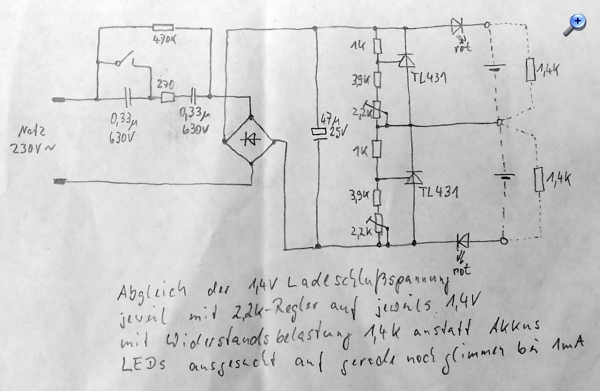 470k
1k
rot
1,4k
3,9k
TL431
270
0,33µ
630V
0,33µ
630V
2,2k
47µ
25V
Netz
230V~
1k
1,4k
3,9k
TL431
2,2k
rot
Abgleich der 1,4V Ladeschlußspannung
jeweil mit 2,2k-Regler auf jeweils 1,4V
mit Widerstandsbelastung 1,4k anstatt Akkus
LEDs ausgesucht auf gerade noch glimmen bei 1mA